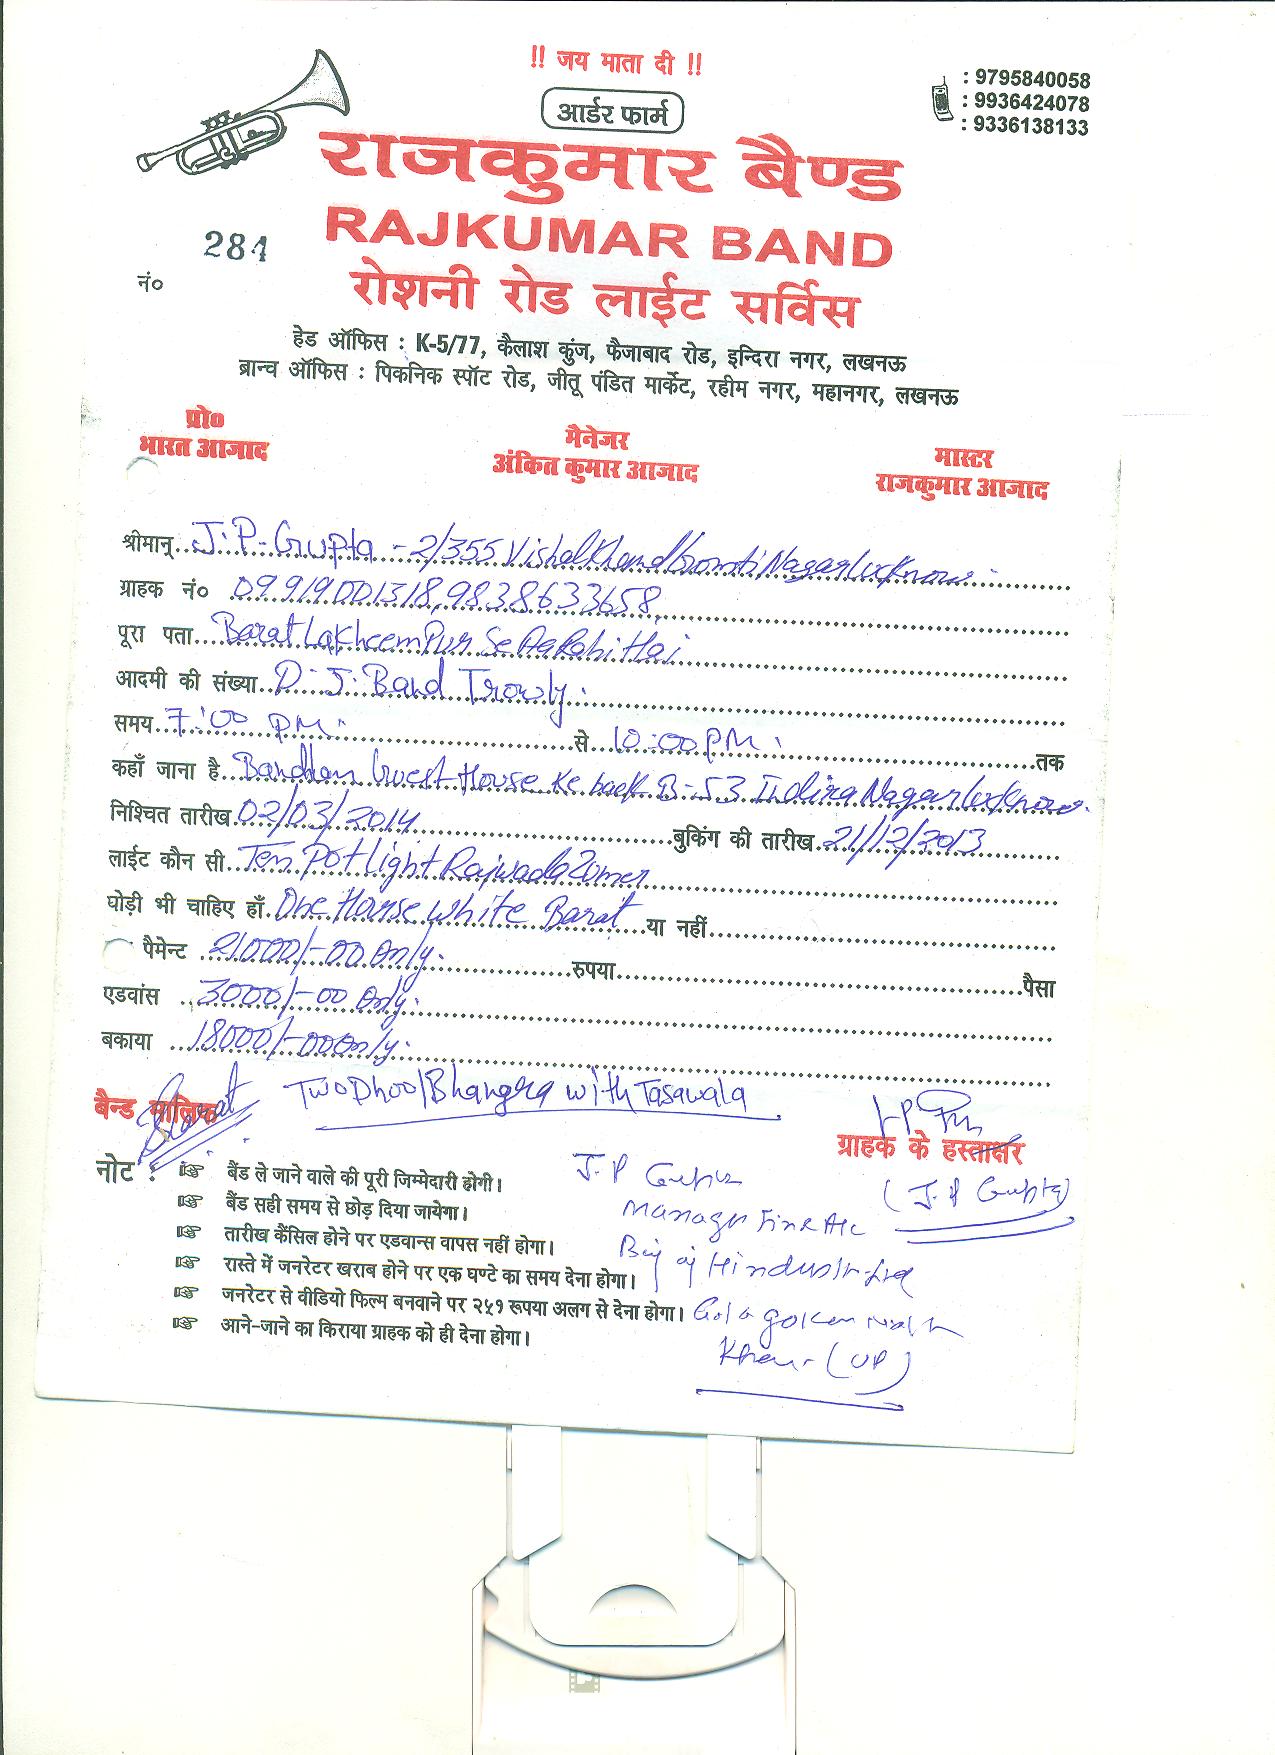 !! जय माता दी !!
आर्डर फार्म
: 9795840058
: 9936424078
: 9336138133
राजकुमार बैण्ड
RAJKUMAR BAND
284
नं०
रोशनी रोड लाईट सर्विस
हेड ऑफिस : K-5/77, कैलाश कुंज, फैजाबाद रोड, इन्दिरा नगर, लखनऊ
ब्रान्च ऑफिस : पिकनिक स्पॉट रोड, जीतू पंडित मार्केट, रहीम नगर, महानगर, लखनऊ
प्रो० मैनेजर मास्टर
भारत आजाद अंकित कुमार आजाद राजकुमार आजाद
श्रीमान् J.P-Gupta - 2/355 Vishal Khand Gomti Nagar Lucknow
ग्राहक नं० 09919001318, 9838633658,
पूरा पता Barat LaKheemPur Se Aa Rahi Hai
आदमी की संख्या D.J. Band Trowly.
समय 7:00 PM. से 10:00 PM. तक
कहाँ जाना है Bandhan Guest House Ke back B-53 Indira Nagar Lucknow.
निश्चित तारीख 02/03/2014 बुकिंग की तारीख 21/12/2013
लाईट कौन सी Ten Pot Light Rajwada
घोड़ी भी चाहिए हाँ One Hourse White Barat या नहीं
पैमेन्ट 21000/-00 Only. रुपया पैसा
एडवांस 3000/-00 Only.
बकाया 18000/-00 Only.
Two Dhool Bhangra with Tasawala
बैन्ड मालिक Bharat
ग्राहक के हस्ताक्षर
(J.P Gupta)
नोट :
☞ बैंड ले जाने वाले की पूरी जिम्मेदारी होगी।
☞ बैंड सही समय से छोड़ दिया जायेगा।
☞ तारीख कैंसिल होने पर एडवान्स वापस नहीं होगा।
☞ रास्ते में जनरेटर खराब होने पर एक घण्टे का समय देना होगा।
☞ जनरेटर से वीडियो फिल्म बनवाने पर २५१ रूपया अलग से देना होगा।
☞ आने-जाने का किराया ग्राहक को ही देना होगा।
J.P Gupta
Manager
Baj Hindusthan
Gola gokaran Nath
Kheri-(UP)